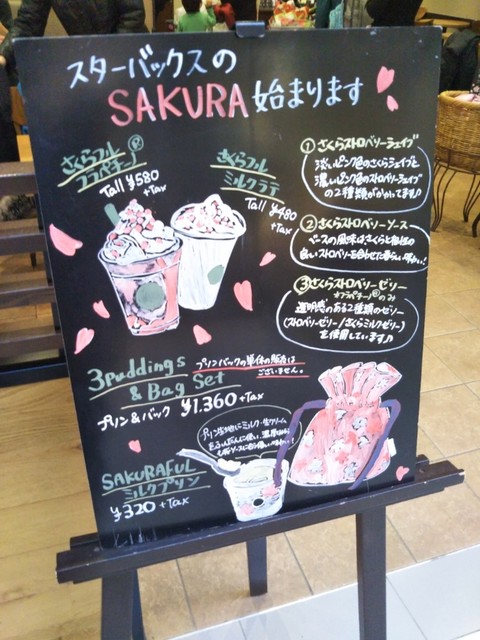 スターバックスの
SAKURA 始まります
さくらフル
フラペチーノ®
Tall ¥580
+Tax
さくらフル
ミルクラテ
Tall ¥480
+Tax
① さくらストロベリーシェイブ
淡いピンク色のさくらシェイブと
濃いピンク色のストロベリーシェイブ
の2種類がかかってます♪
② さくらストロベリーソース
ベースの風味はさくらと相性の
良いストロベリーを合わせた
③ さくらストロベリーゼリー
※フラペチーノ®のみ
透明感のある2種類のゼリー
(ストロベリーゼリー/さくらミルクゼリー)
を使用しています♪
3puddings
& Bag Set
プリンバックの単体の販売は
ございません。
プリン&バック ¥1.360+Tax
プリン生地にミルク・生クリーム
SAKURAFUL
ミルクプリン
¥320+Tax